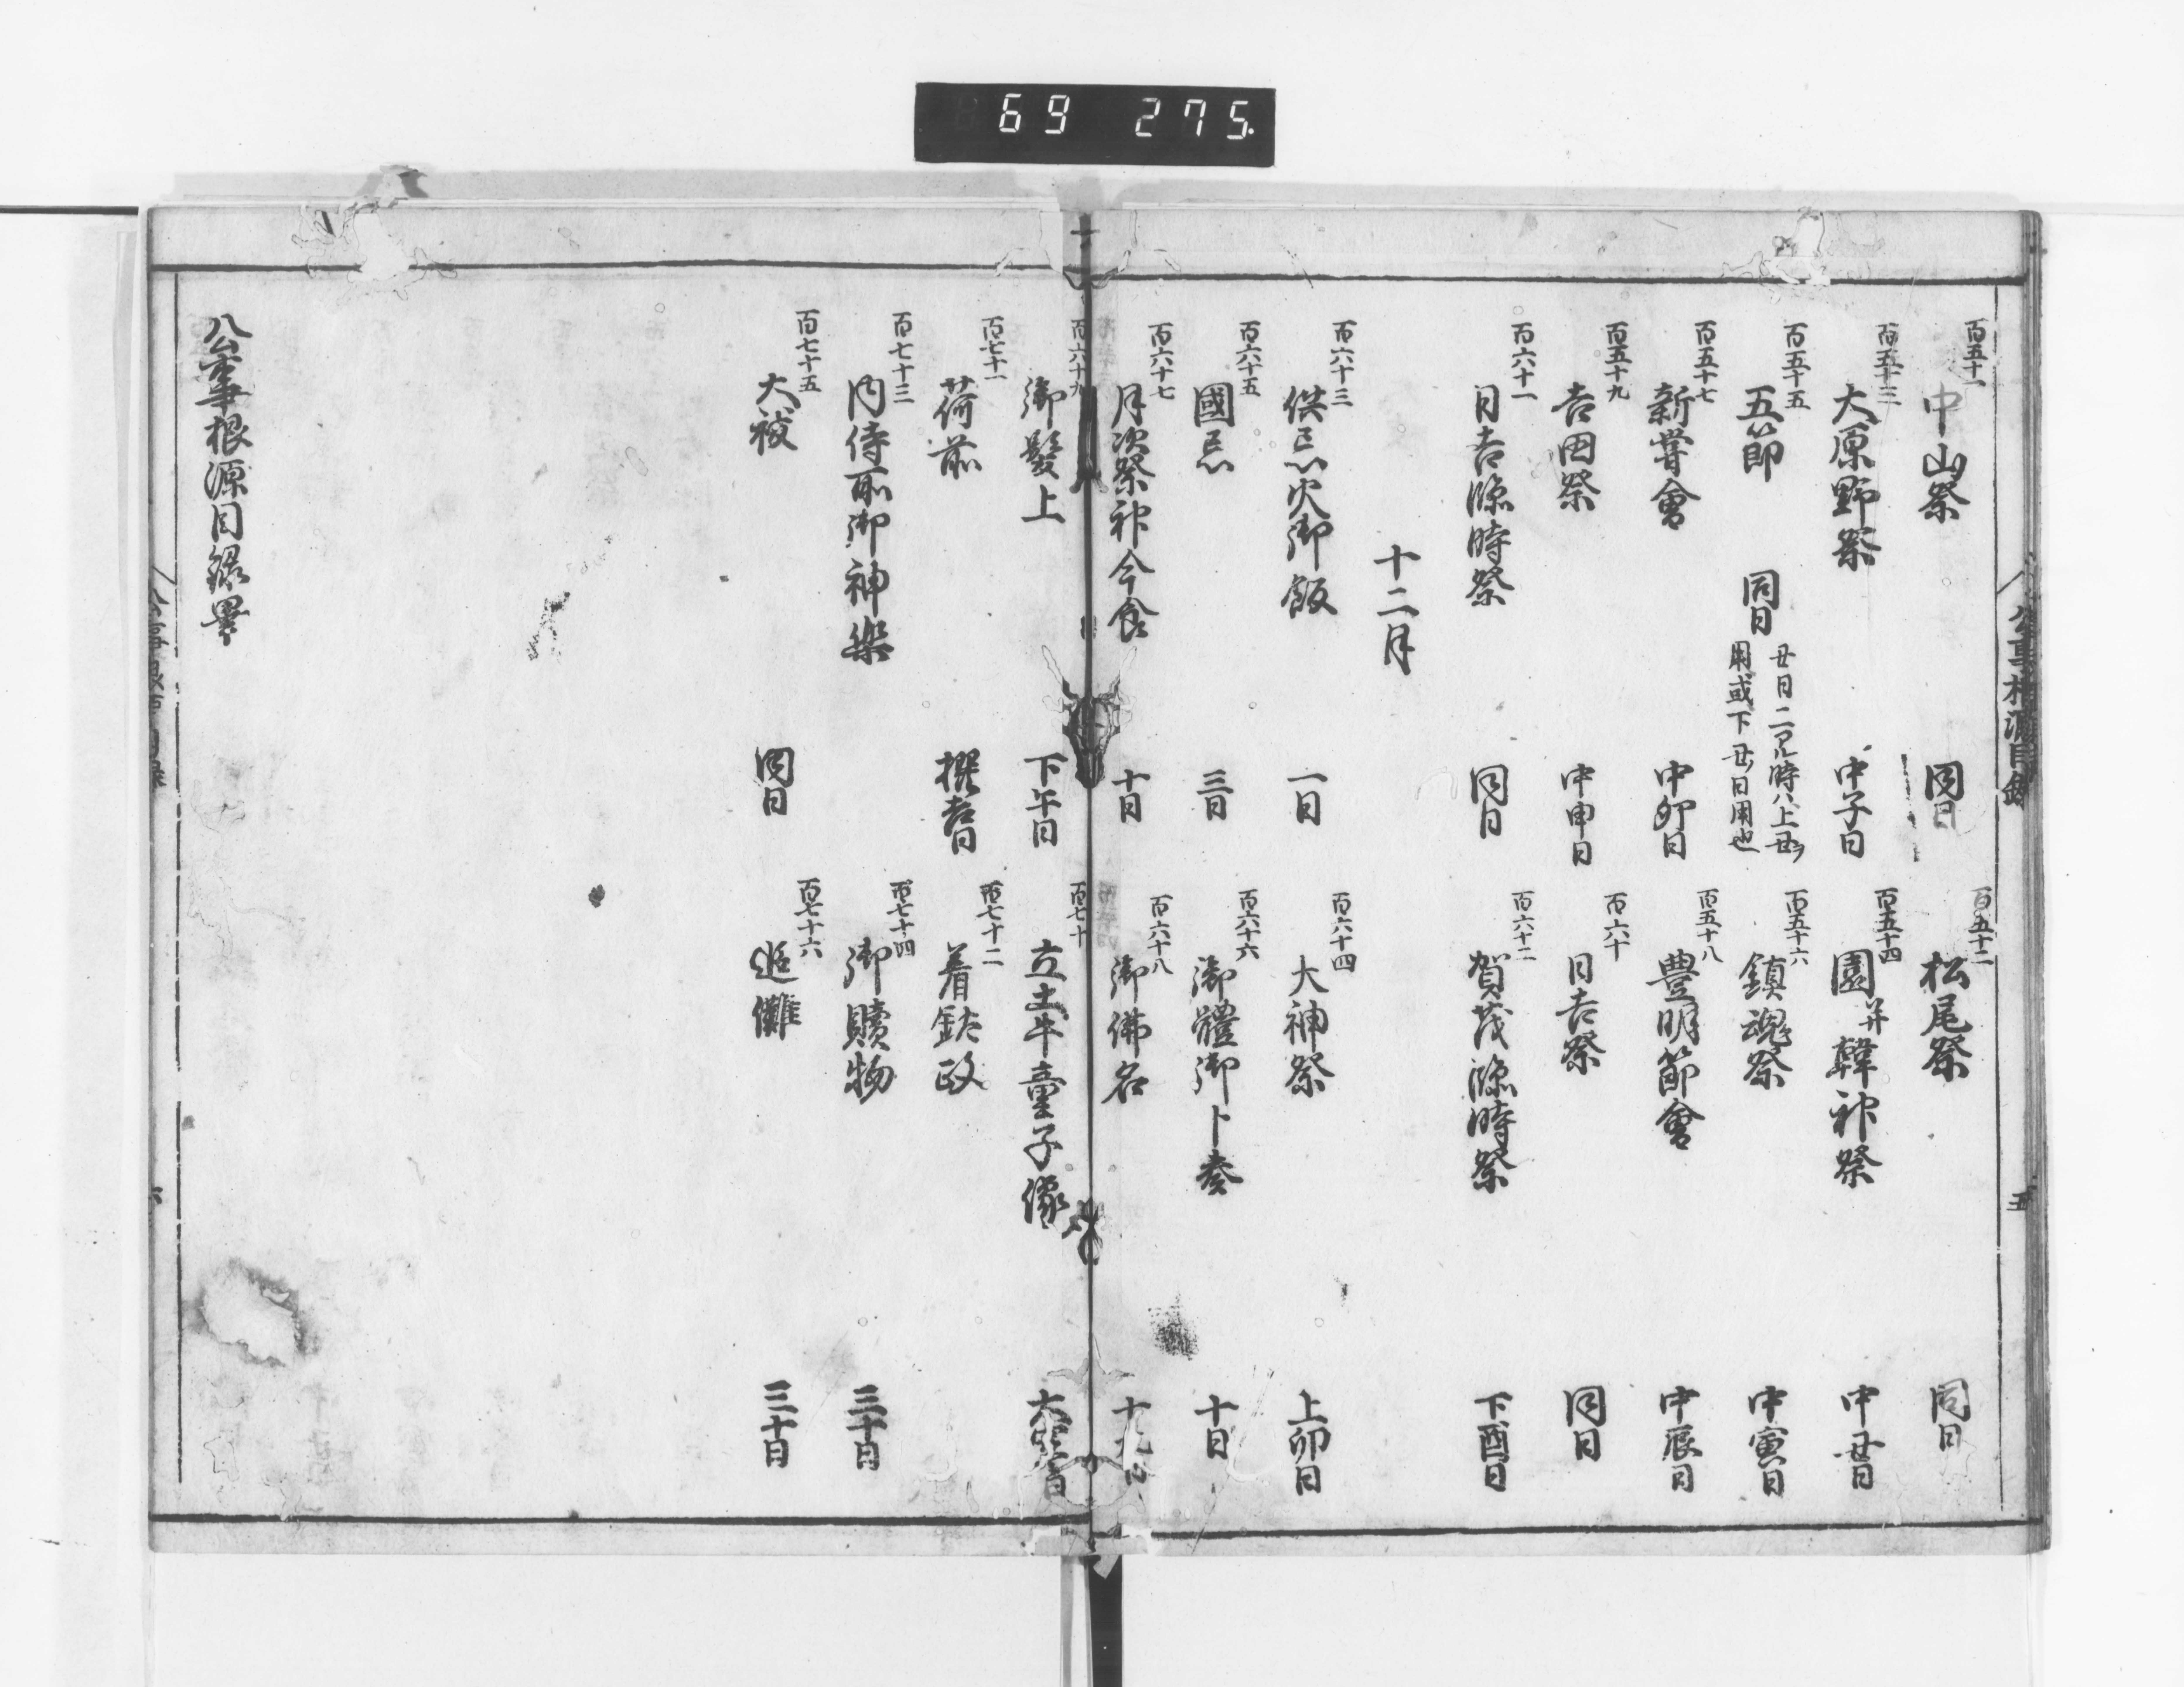 69 275.
百五十一 中山祭 同日 百五十二 松尾祭 同日
百五十三 大原野祭 中子日 百五十四 園并韓神祭 中丑日
百五十五 五節 同日 丑日二アル時ハ上丑ヲ
用或下丑日用也 百五十六 鎮魂祭 中寅日
百五十七 新嘗會 中卯日 百五十八 豊明節會 中辰日
百五十九 吉田祭 中申日 百六十 日吉祭 同日
百六十一 日吉臨時祭 同日 百六十二 賀茂臨時祭 下酉日
十二月
百六十三 供忌火御飯 一日 百六十四 大神祭 上卯日
百六十五 國忌 三日 百六十六 御體御卜奏 十日
百六十七 月次祭神今食 十一日 百六十八 御佛名 十九日
百六十九 御髪上 下午日 百七十 立土牛童子像 大寒日
百七十一 荷前 撰吉日 百七十二 着鈦政
百七十三 内侍所御神楽 百七十四 御贖物 三十日
百七十五 大祓 同日 百七十六 追儺 三十日
公事根源目録畢
公事根源目録 五